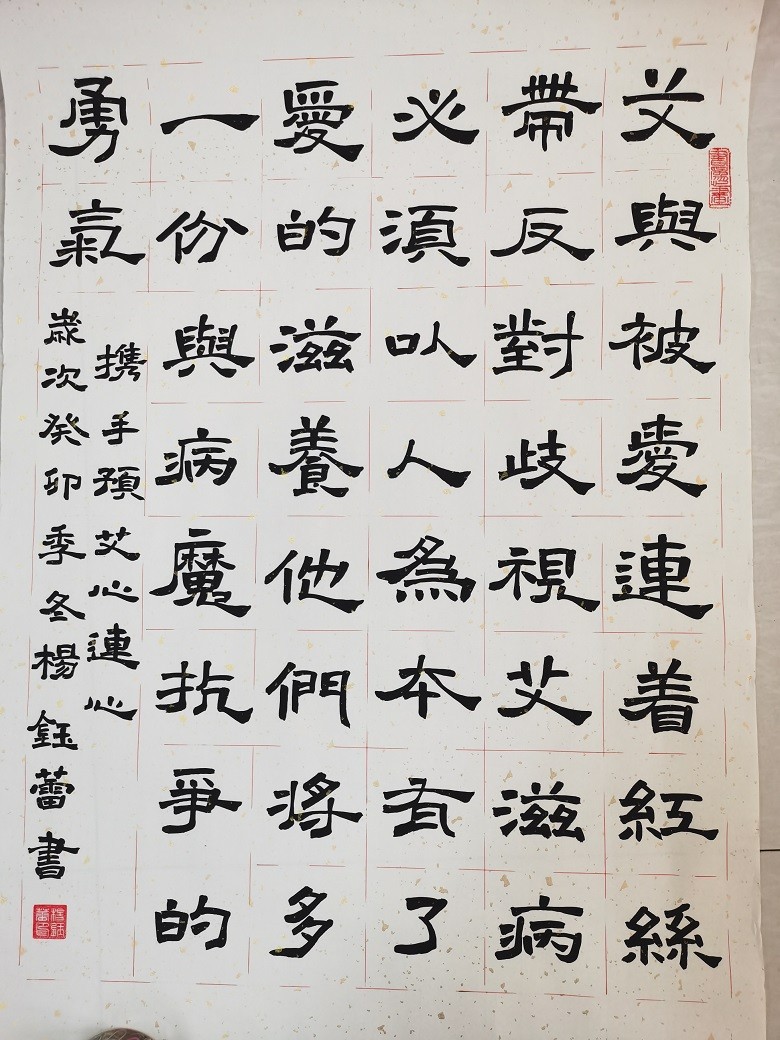 艾與被愛連着紅絲
帶反對歧視艾滋病
必須以人為本有了
愛的滋養他們將多
一份與病魔抗爭的
勇氣
携手預艾心連心
歲次癸卯季冬楊鈺蕾書